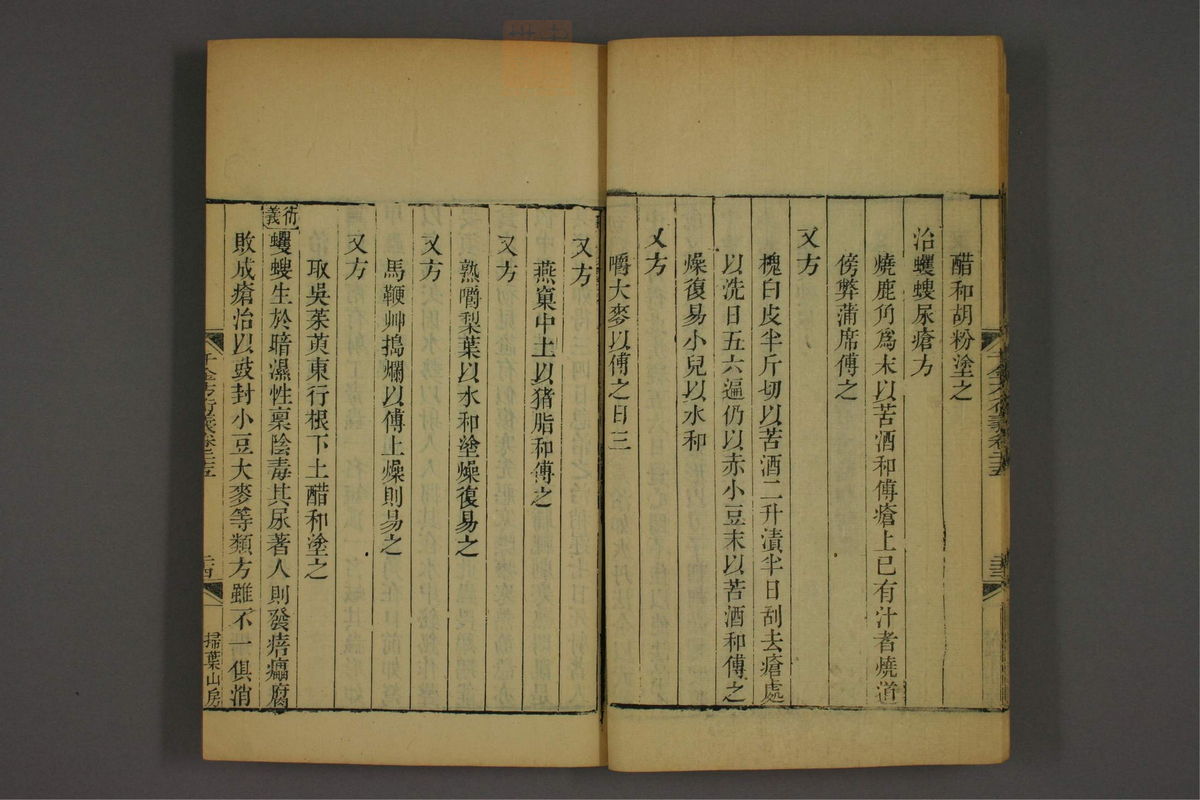 醋和胡粉塗之
治蠼螋尿瘡方
燒鹿角爲末以苦酒和傅瘡上已有汁者燒道
傍弊蒲席傅之
又方
槐白皮半斤切以苦酒二升漬半日刮去瘡處
以洗日五六遍仍以赤小豆末以苦酒和傅之
燥復易小兒以水和
又方
嚼大麥以傅之日三
又方
燕窠中土以猪脂和傅之
又方
熟嚼梨葉以水和塗燥復易之
又方
馬鞭艸搗爛以傅上燥則易之
又方
取吳茱萸東行根下土醋和塗之
衍義
蠼螋生於暗濕性稟陰毒其尿著人則發痦㿔腐
敗成瘡治以豉封小豆大麥等類方雖不一俱消
千金方衍義卷二十五
二十四
掃葉山房